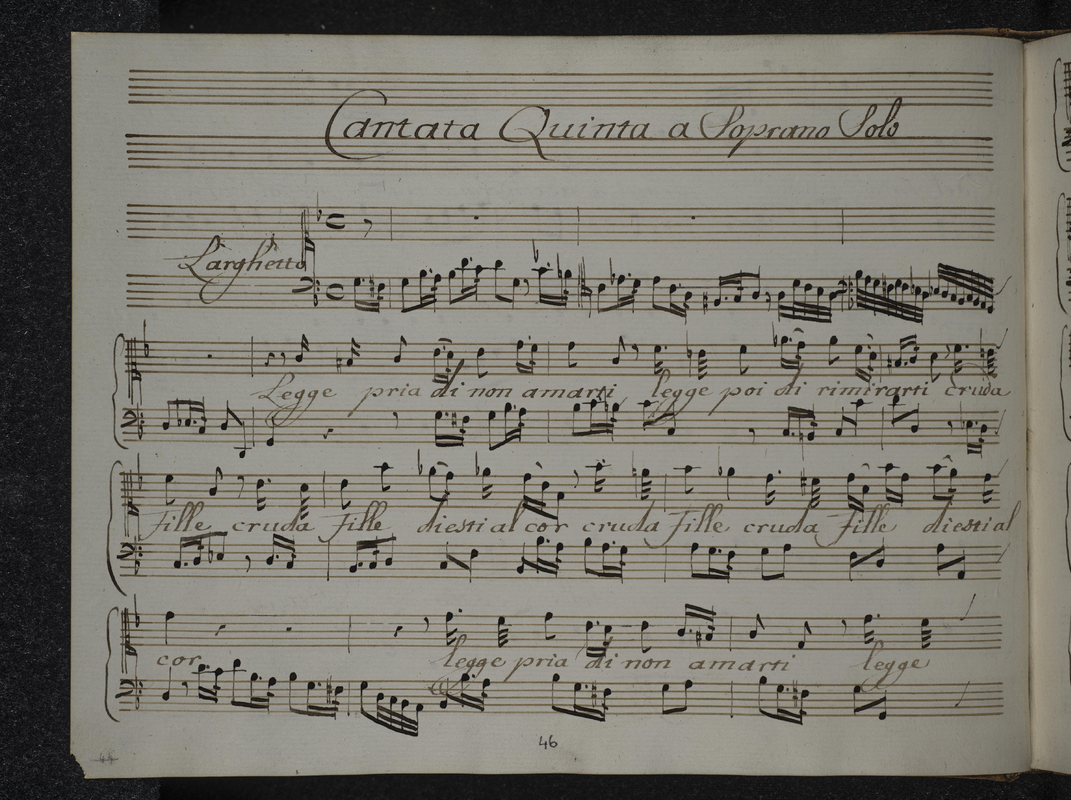 Cantata Quinta a Soprano Solo
Larghetto
Legge pria di non amarti legge poi di rimirarti cruda
Fille cruda Fille diesti al cor cruda Fille cruda Fille diesti al
cor legge pria di non amarti legge
46
44